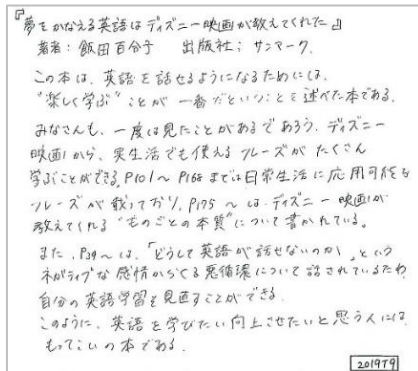 『夢をかなえる英語はディズニー映画が教えてくれた』
著者：飯田百合子　出版社；サンマーク．
この本は、英語を話せるようになるためには、
"楽しく学ぶ"ことが一番だということを述べた本である．
みなさんも、一度は見たことがあるであろう、ディズニー
映画から、実生活でも使えるフレーズがたくさん
学ぶことができる。P101～P168までは日常生活に応用可能な
フレーズが載っており、P175～は、ディズニー映画が
教えてくれる"ものごとの本質"について書かれている。
また、P39～は、「どうして英語が話せないのか」という
ネガティブな感情からくる悪循環について話されているため
自分の英語学習を見直すことができる．
このように、英語を学びたい向上させたいと思う人には
もってこいの本である．
2019T9